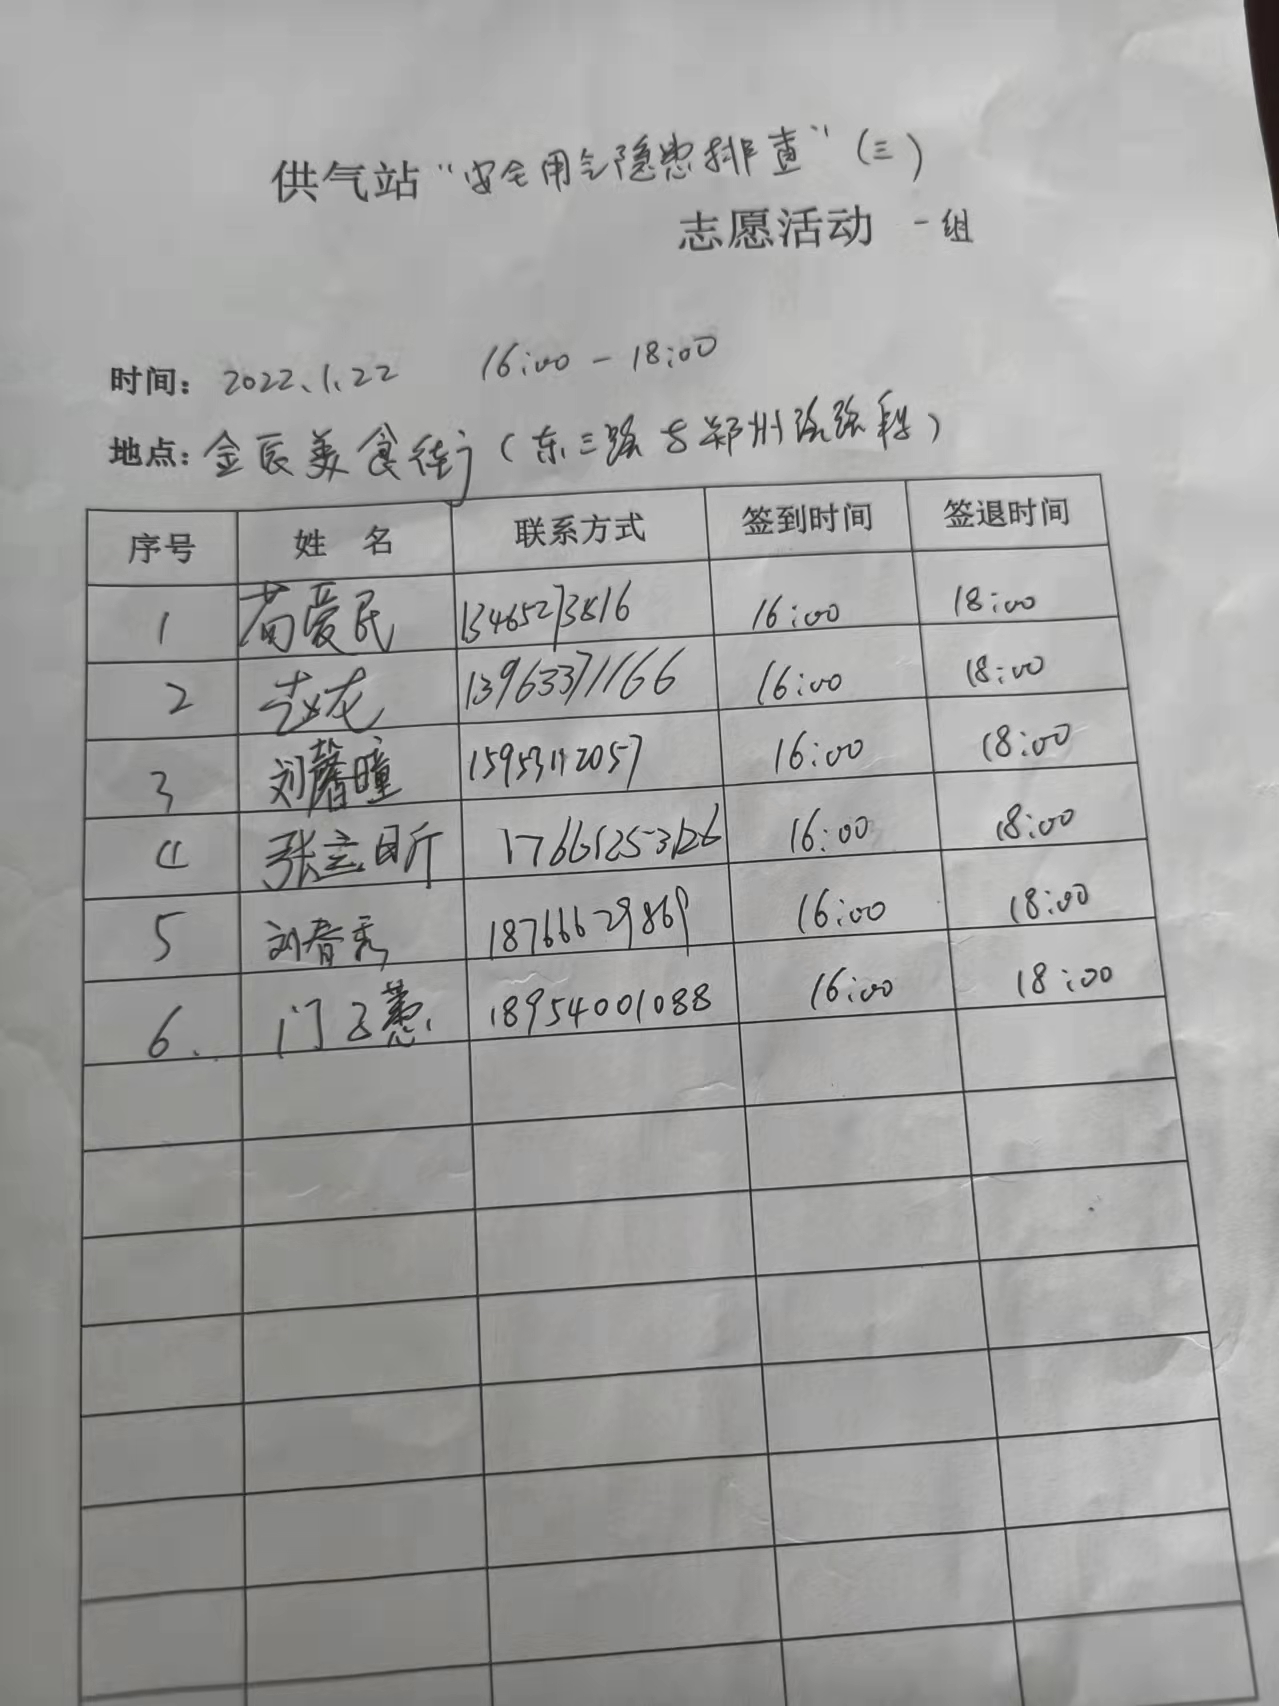 供气站“安全用气隐患排查”(三)
志愿活动 一组
时间: 2022.1.22 16:00 - 18:00
地点: 金辰美食街(东三路与郑州路路段)
序号 姓 名 联系方式 签到时间 签退时间
1 苟爱民 13465273816 16:00 18:00
2 赵龙 13963371166 16:00 18:00
3 刘馨瞳 15953112057 16:00 18:00
4 张立昕 16:00 18:00
5 刘春秀 18766629869 16:00 18:00
6. 门子蕙 18954001088 16:00 18:00